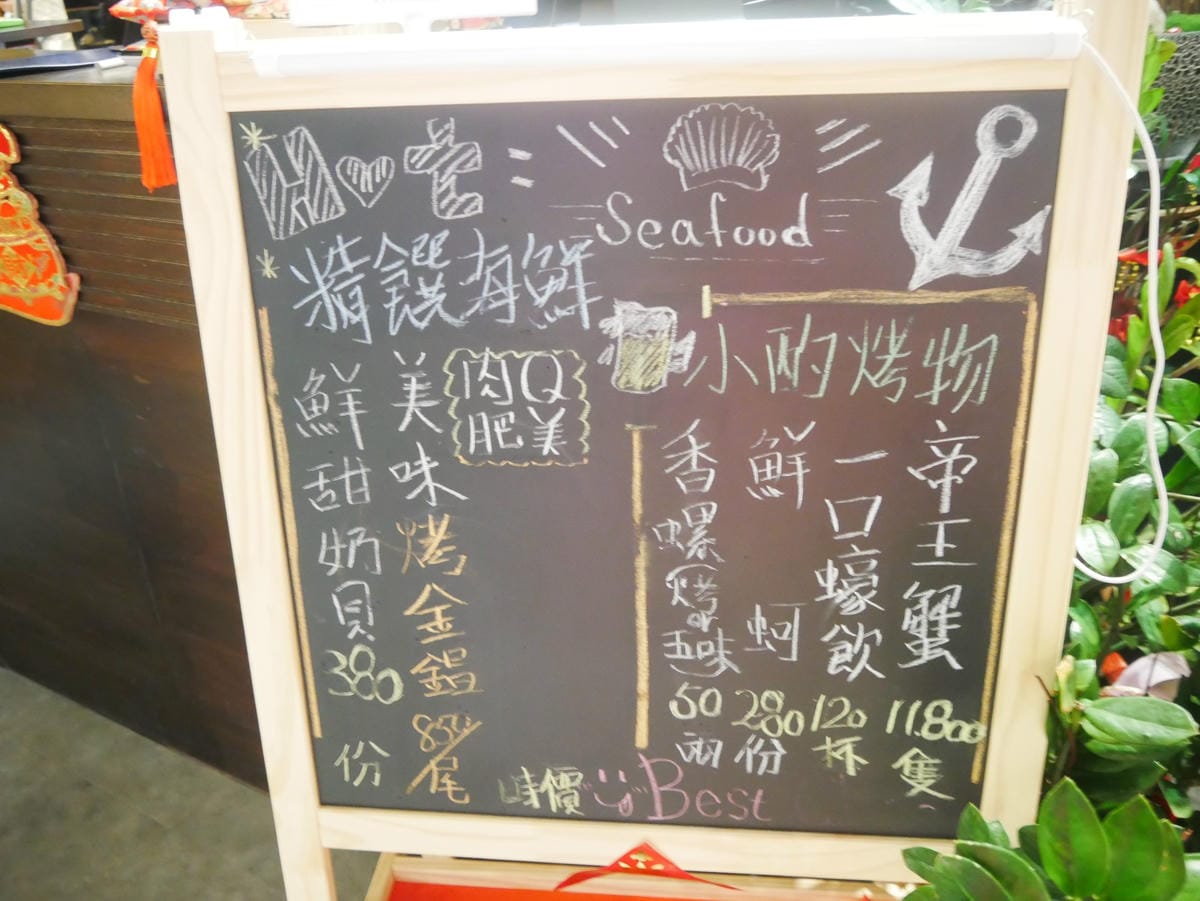 Seafood
精饌海鮮
肉Q
肥美
美味烤金錩 850/尾
鮮甜奶貝 380 份
小酌烤物
帝王蟹 11.800 隻
一口蠔飲 120 杯
鮮蚵 280 份
香螺(烤or五味) 50 兩
時價 Best